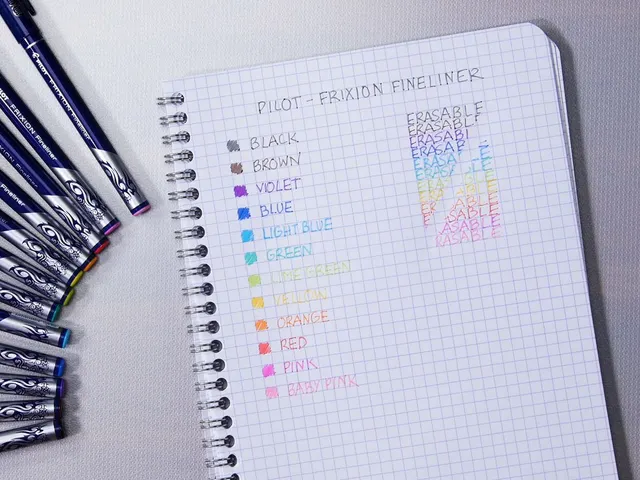 PILOT FRIXION Fineliner
FRIXION Fineliner
Fineliner
PILOT - FRIXION FINELINER
BLACK
BROWN
VIOLET
BLUE
LIGHT BLUE
GREEN
LIME GREEN
YELLOW
ORANGE
RED
PINK
BABY PINK
ERASABLE
ERASABLE
ERASABL
ERASAB
ERASA